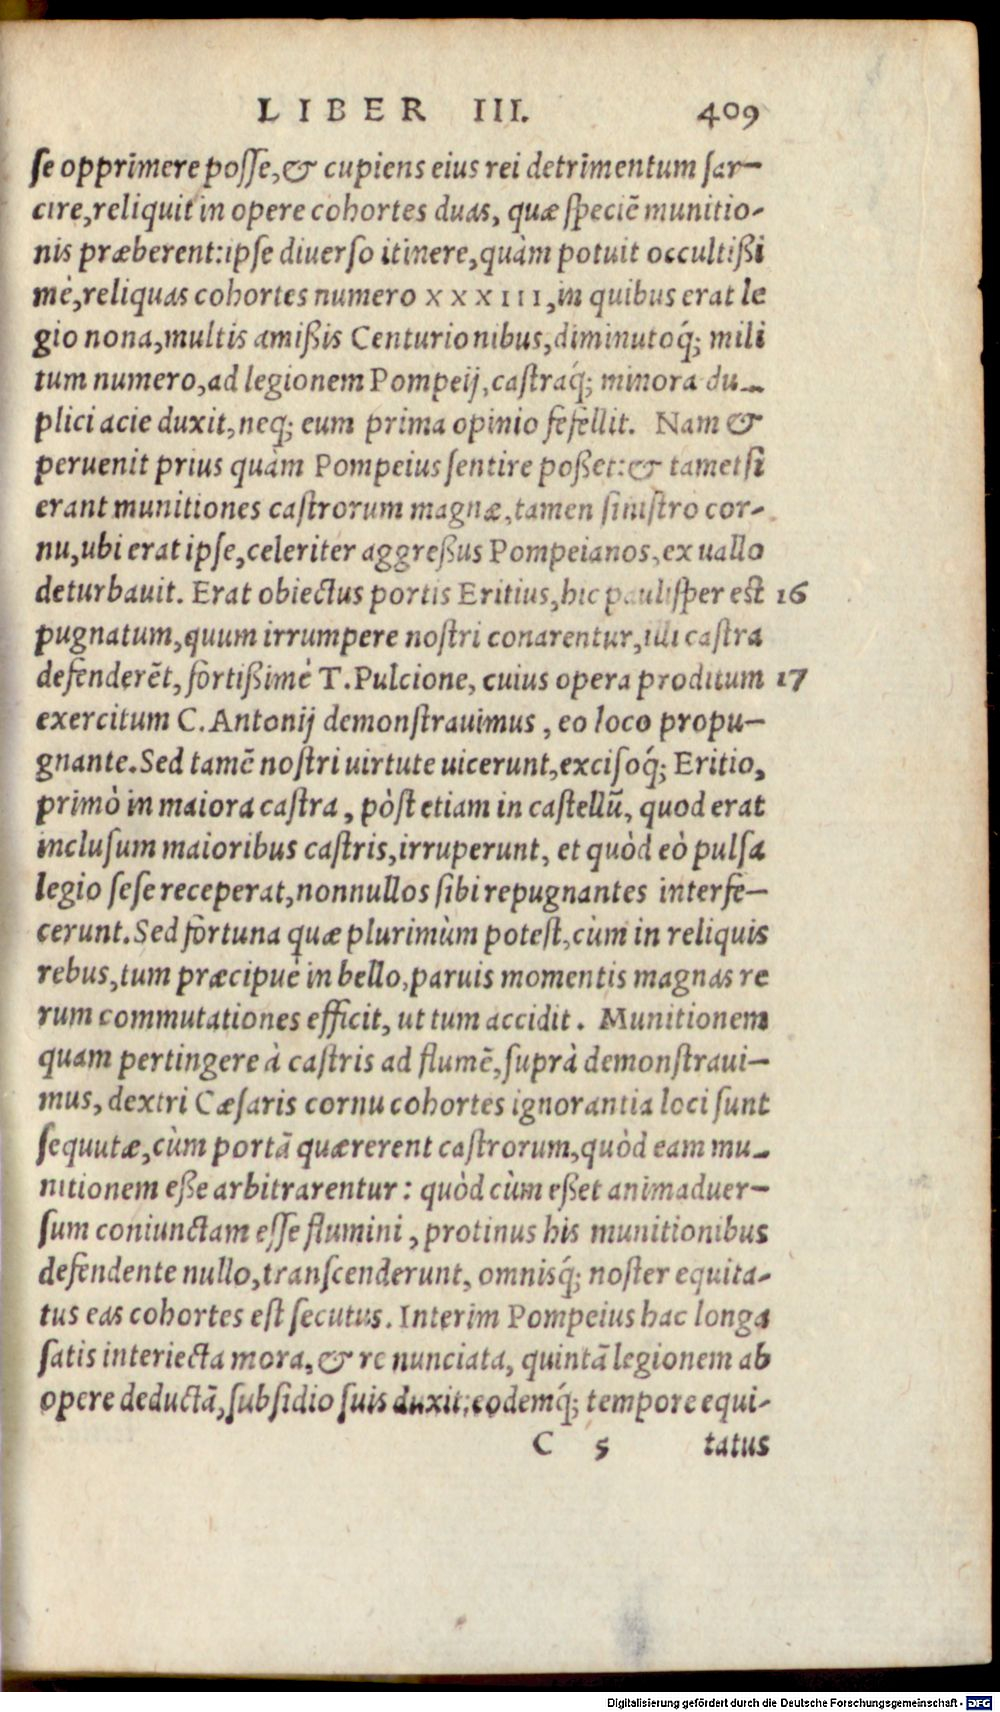 LIBER III. 409
se opprimere posse, & cupiens eius rei detrimentum sar-
cire, reliquit in opere cohortes duas, quæ speciē munitio-
nis præberent: ipse diuerso itinere, quàm potuit occultißi
mè, reliquas cohortes numero XXXIII, in quibus erat le
gio nona, multis amißis Centurionibus, diminutoq́; mili
tum numero, ad legionem Pompeij, castraq́; minora du-
plici acie duxit, neq; eum prima opinio fefellit. Nam &
peruenit prius quàm Pompeius sentire poßet: & tametsi
erant munitiones castrorum magnæ, tamen sinistro cor-
nu, ubi erat ipse, celeriter aggreßus Pompeianos, ex uallo
deturbauit. Erat obiectus portis Eritius, hic paulisper est 16
pugnatum, quum irrumpere nostri conarentur, illi castra
defenderēt, fortißimè T. Pulcione, cuius opera proditum 17
exercitum C. Antonij demonstrauimus, eo loco propu-
gnante. Sed tamē nostri uirtute uicerunt, excisoq́; Eritio,
primò in maiora castra, pòst etiam in castellū, quod erat
inclusum maioribus castris, irruperunt, et quòd eò pulsa
legio sese receperat, nonnullos sibi repugnantes interfe-
cerunt. Sed fortuna quæ plurimùm potest, cùm in reliquis
rebus, tum præcipuè in bello, paruis momentis magnas re
rum commutationes efficit, ut tum accidit. Munitionem
quam pertingere à castris ad flumē, suprà demonstraui-
mus, dextri Cæsaris cornu cohortes ignorantia loci sunt
sequutæ, cùm portā quærerent castrorum, quòd eam mu-
nitionem eße arbitrarentur: quòd cùm eßet animaduer-
sum coniunctam esse flumini, protinus his munitionibus
defendente nullo, transcenderunt, omnisq́; noster equita-
tus eas cohortes est secutus. Interim Pompeius hac longa
satis interiecta mora, & re nunciata, quintā legionem ab
opere deductā, subsidio suis duxit: eodemq́; tempore equi-
C 5 tatus
Digitalisierung gefördert durch die Deutsche Forschungsgemeinschaft - DFG